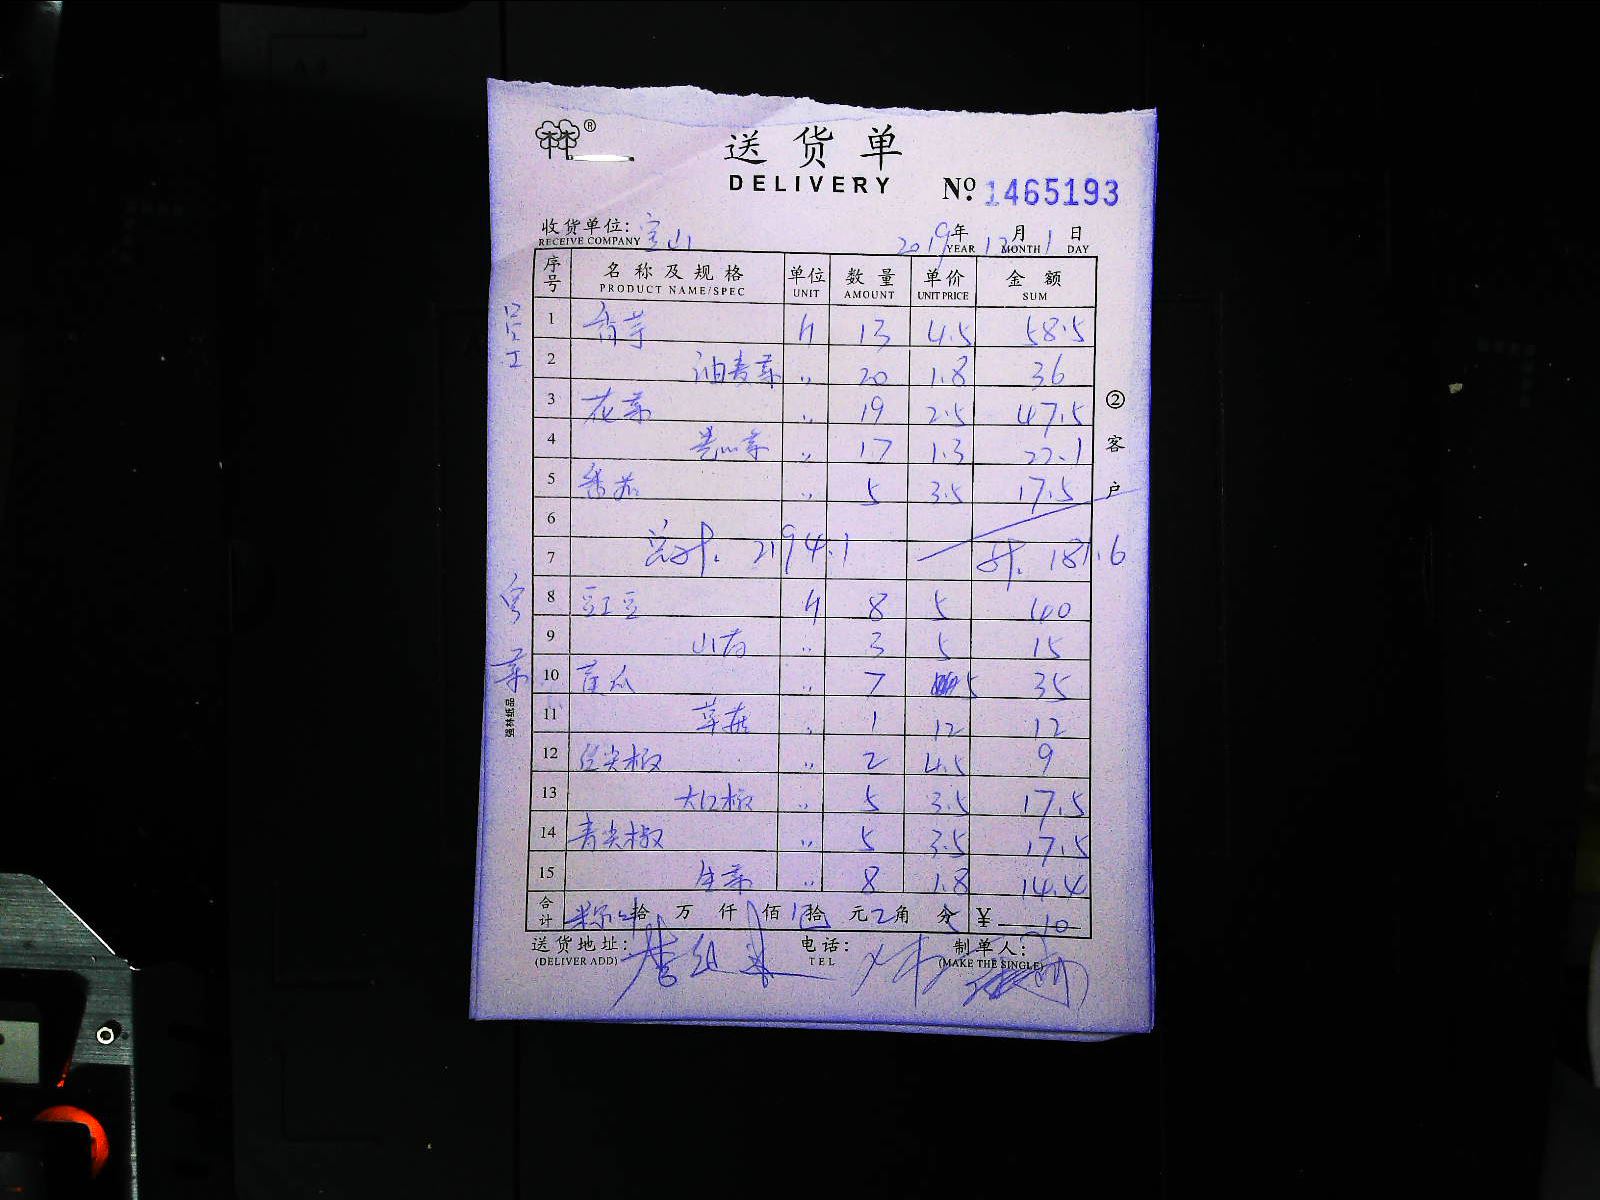 送货单
DELIVERY
№ 1465193
收货单位: 宝山 2019年12月1日
RECEIVE COMPANY YEAR MONTH DAY
序号 名称及规格 单位 数量 单价 金额
PRODUCT NAME/SPEC UNIT AMOUNT UNIT PRICE SUM
员工
1 香芋 斤 13 4.5 58.5
2 油麦菜 〃 20 1.8 36
3 花菜 〃 19 2.5 47.5
4 〃 17 1.3 22.1
5 番茄 〃 5 3.5 17.5
6
7 总计. 2194.1 计. 181.6
客菜
8 豇豆 斤 8 5 40
9 山药 〃 3 5 15
10 〃 7 5 35
11 草菇 〃 1 12 12
12 红尖椒 〃 2 4.5 9
13 大红椒 〃 5 3.5 17.5
14 青尖椒 〃 5 3.5 17.5
15 生菜 〃 8 1.8 14.4
合计 拾 万 仟 佰 拾 元 角 分 ¥ 10
送货地址: 电话: 制单人:
(DELIVER ADD) TEL (MAKE THE SINGLE)
②客户
强林纸品